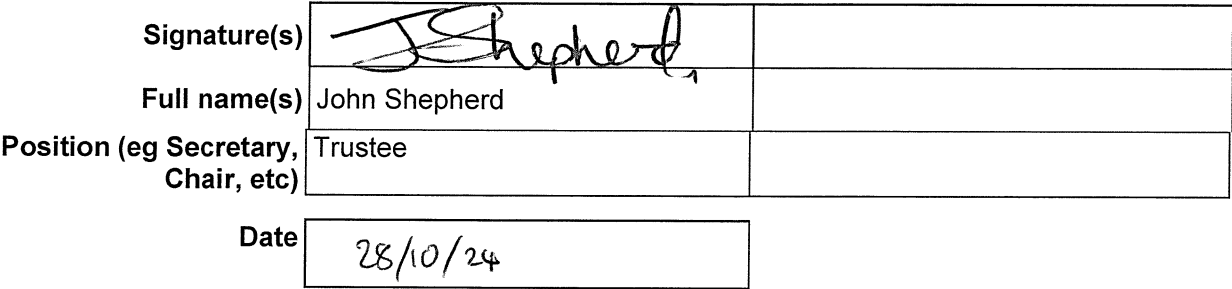 Signature(s) J Shepherd
Full name(s) John Shepherd
Position (eg Secretary, Trustee
Chair, etc)
Date 28/10/24